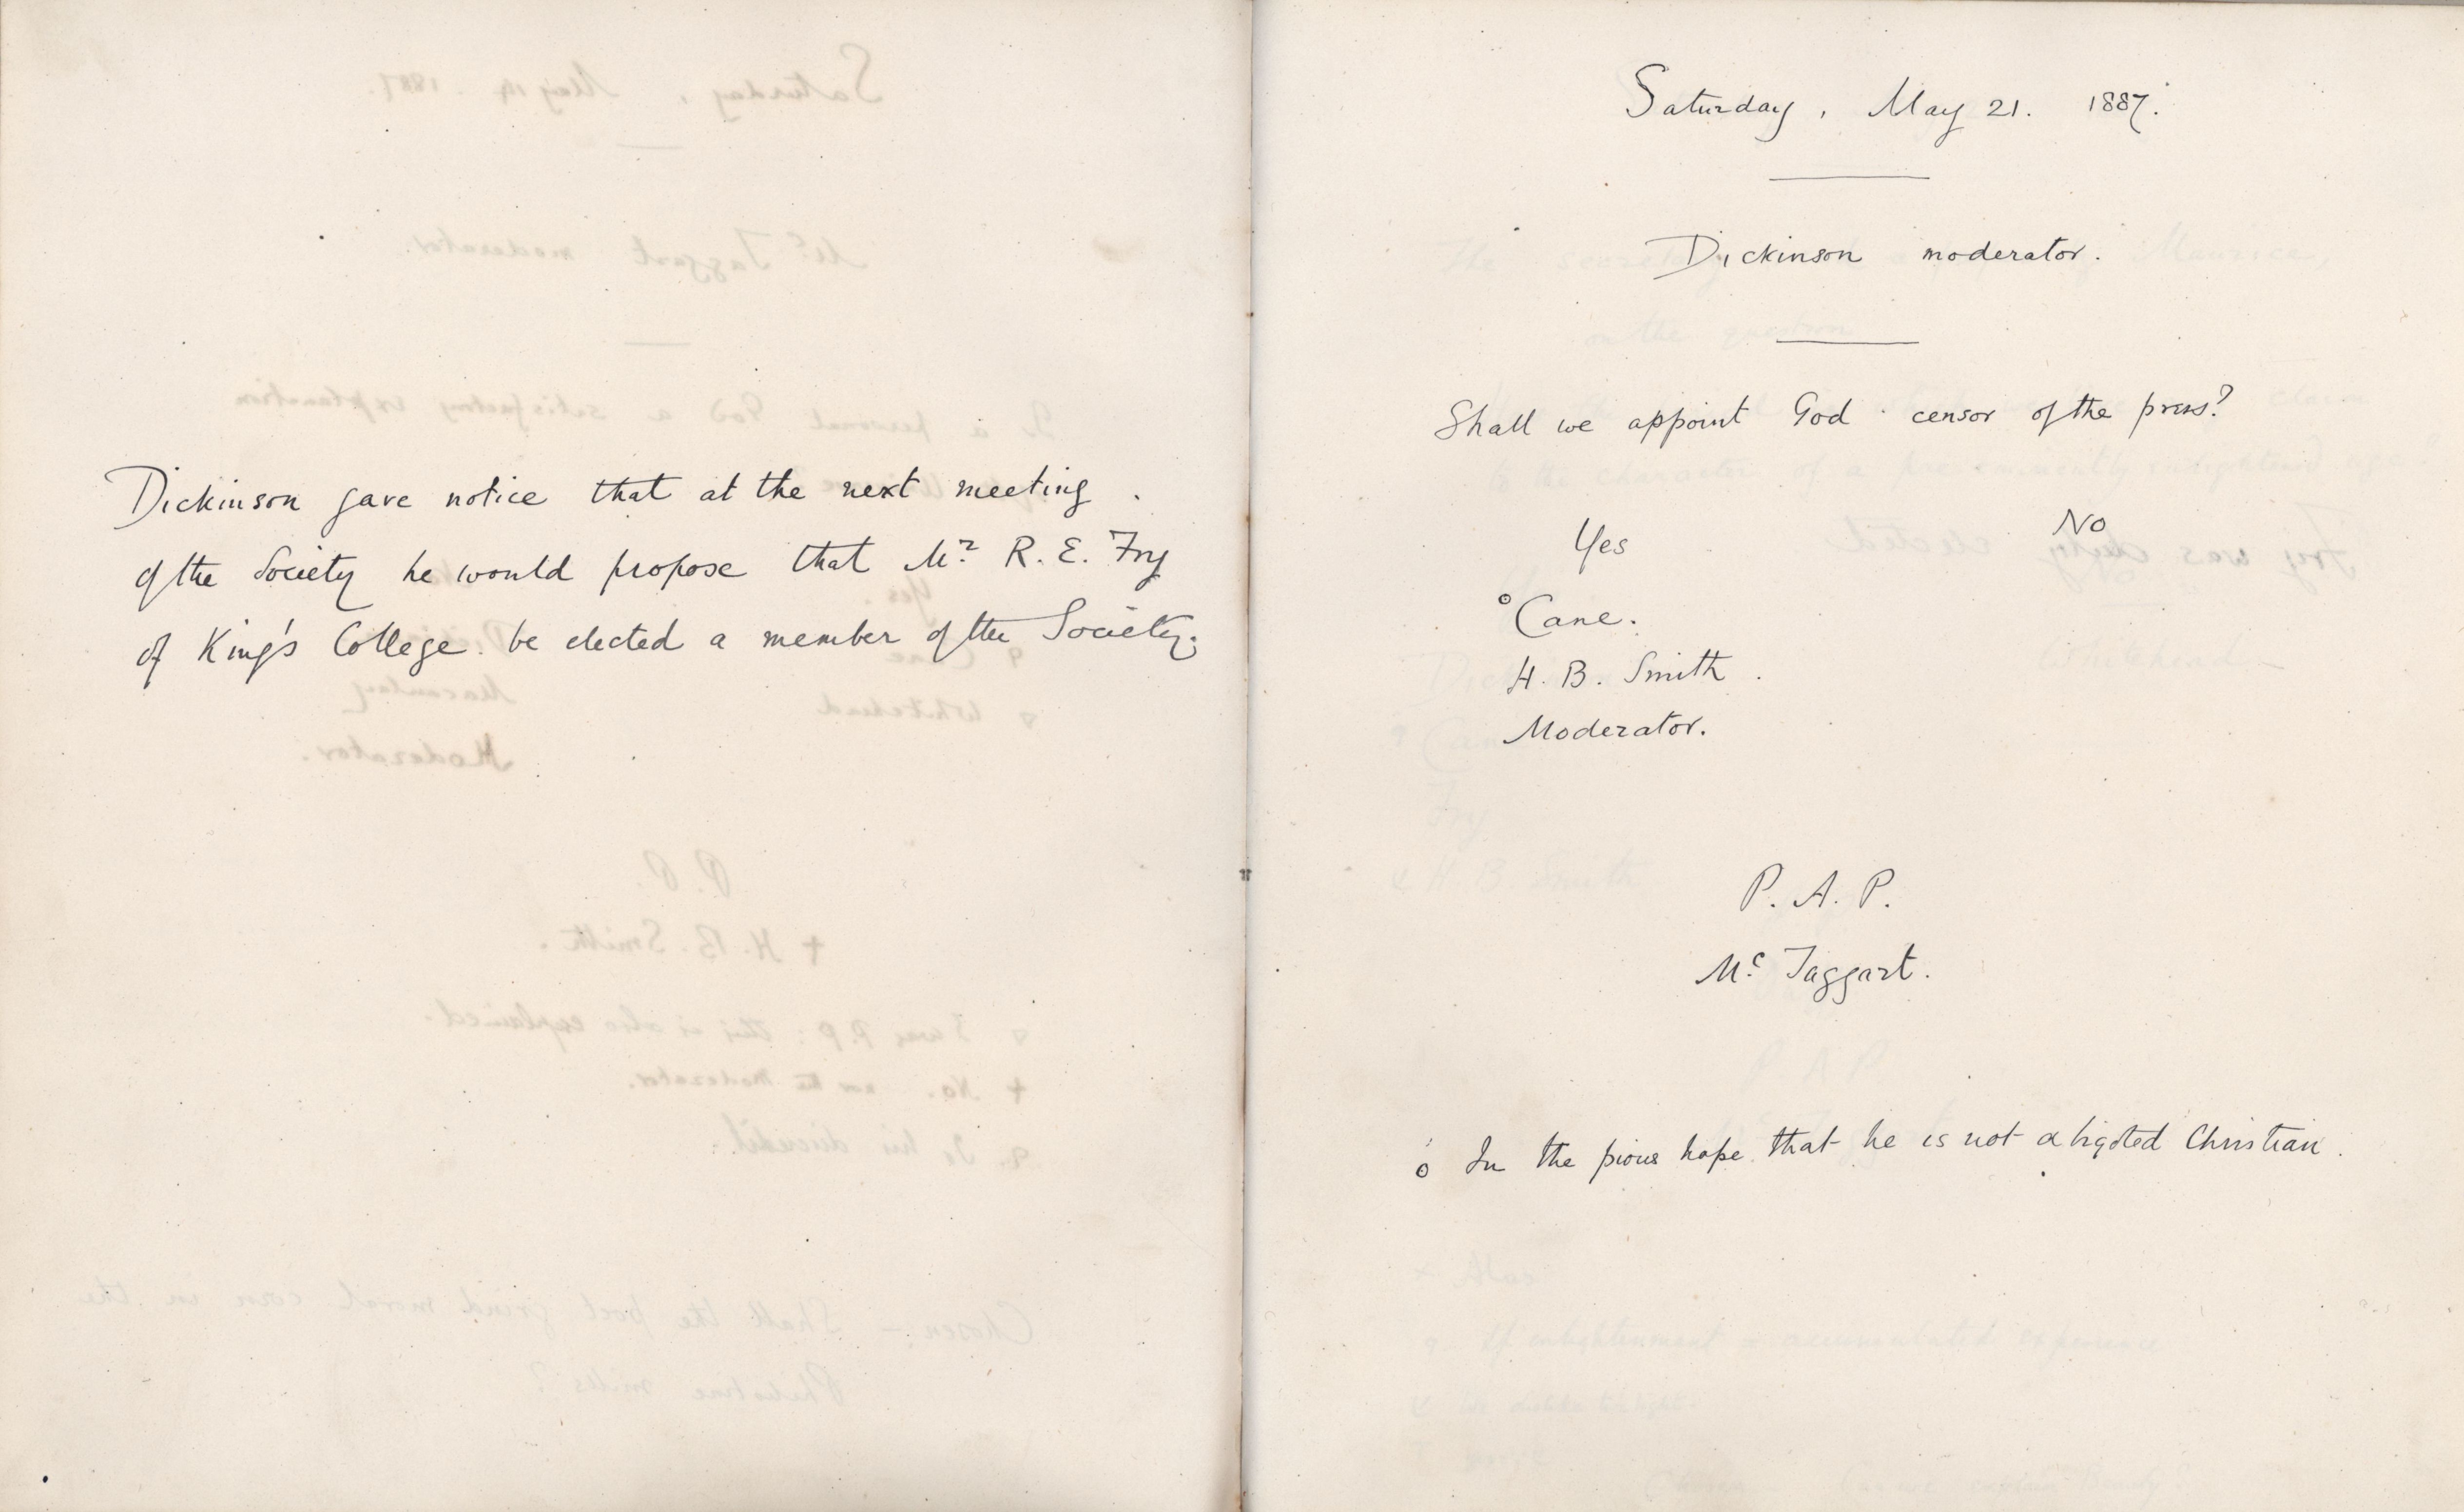 Dickinson gave notice that at the next meeting .
of the Society he would propose that Mr. R. E. Fry
of King's College be elected a member of the Society.
Saturday, May 21. 1887.
Dickinson moderator.
Shall we appoint God censor of the press?
Yes
No
° Cane.
H. B. Smith.
Moderator.
P. A. P.
Mc Taggart.
o In the pious hope that he is not a bigoted Christian.